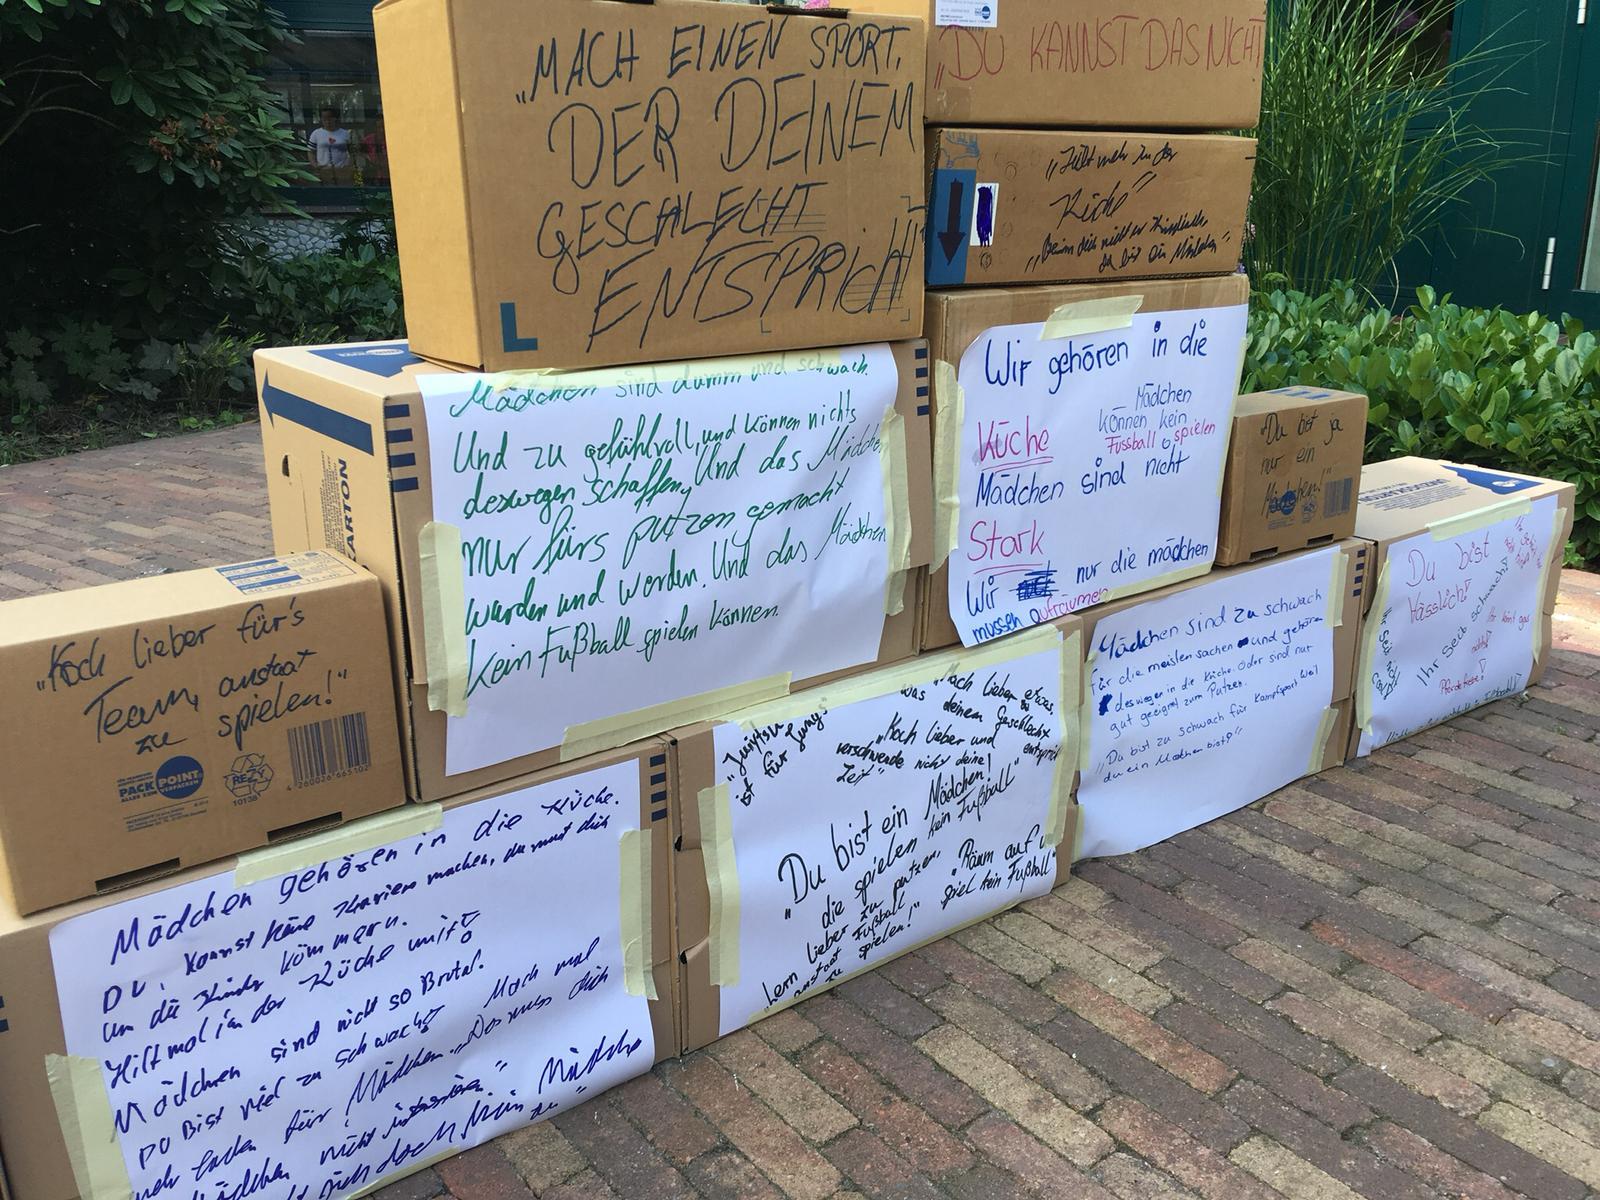 „MACH EINEN SPORT,
DER DEINEM
GESCHLECHT
ENTSPRICHT!
„DU KANNST DAS NICHT
„Hilf mehr in der
Küche“
du bist ein Mädchen“
Mädchen sind dumm und schwach.
Und zu gefühlvoll, und können nichts
deswegen schaffen, Und das Mädchen
nur fürs putzen gemacht
wurden und werden. Und das Mädchen
kein Fußball spielen können.
Wir gehören in die
Küche
Mädchen
können kein
Fussball spielen
Mädchen sind nicht
Stark
Wir nur die mädchen
müssen aufräumen
„Du bist ja
nur ein
Mädchen!“
KARTON
„Koch lieber für's
Team, anstatt
zu spielen!“
PACK POINT
VERPACKEN
REZY
10138
4 260026 665102
Mädchen gehören in die Küche.
DU kannst keine Karriere machen, du musst dich
um die Kinder kümmern.
Hilf mal in der Küche mit!
Mädchen sind nicht so Brutal.
DU Bist viel zu schwach! Mach mal
mehr für Mädchen. „Das muss dich
Mädchen nicht interessieren“
doch kein Mädche
ist für Jungs“
„Mach lieber etwas,
was deinem Geschlecht
entspricht
„Koch lieber und
verschwende nicht deine
Zeit“
„Du bist ein Mädchen!
die spielen kein Fußball“
„Lern lieber zu putzen,
anstaat Fußball
zu spielen!“
„Räum auf u
spiel kein Fußball“
Mädchen sind zu schwach
für die meisten sachen und gehören
deswegen in die Küche. Oder sind nur
gut geeignet zum Putzen.
„Du bist zu schwach für Kampfsport weil
du ein Mädchen bist!“
Du bist
Hässlich!
Ihr seit schwach!
Ihr könnt gar
nichts!